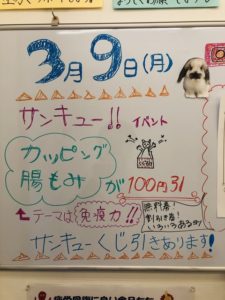 3月9日(月)
サンキュー!! イベント
カッピング
腸もみ が 100円引
テーマは 免疫力!!
無料券!
割引き券!
いろいろあるョ
サンキューくじ引きあります!